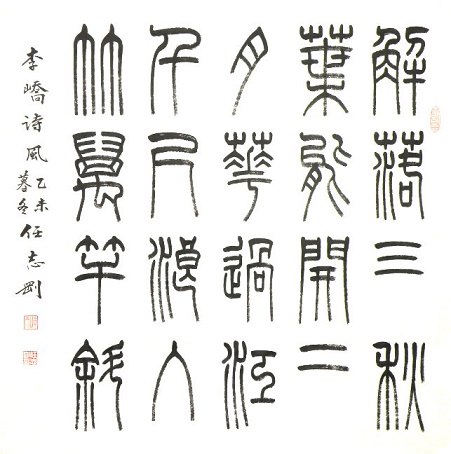 解落三秋
葉能開二
月華過江
千尺浪入
竹萬竿斜
李嶠诗風乙未暮冬任志剛